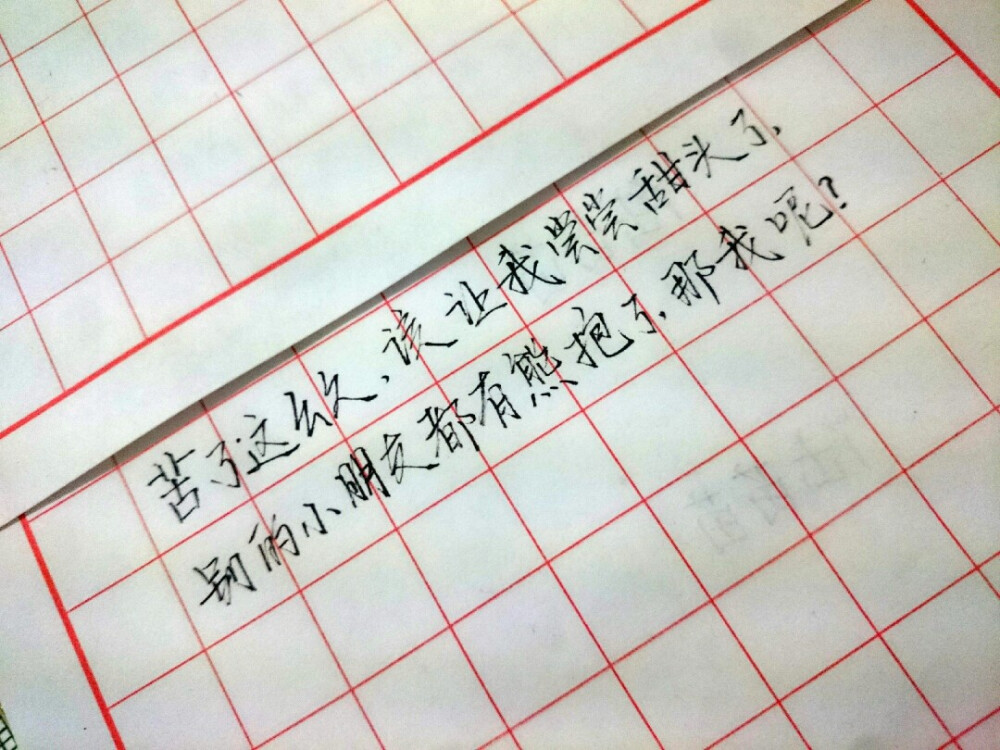 苦了这么久、该让我尝尝甜头了、
别的小朋友都有熊抱了、那我呢?